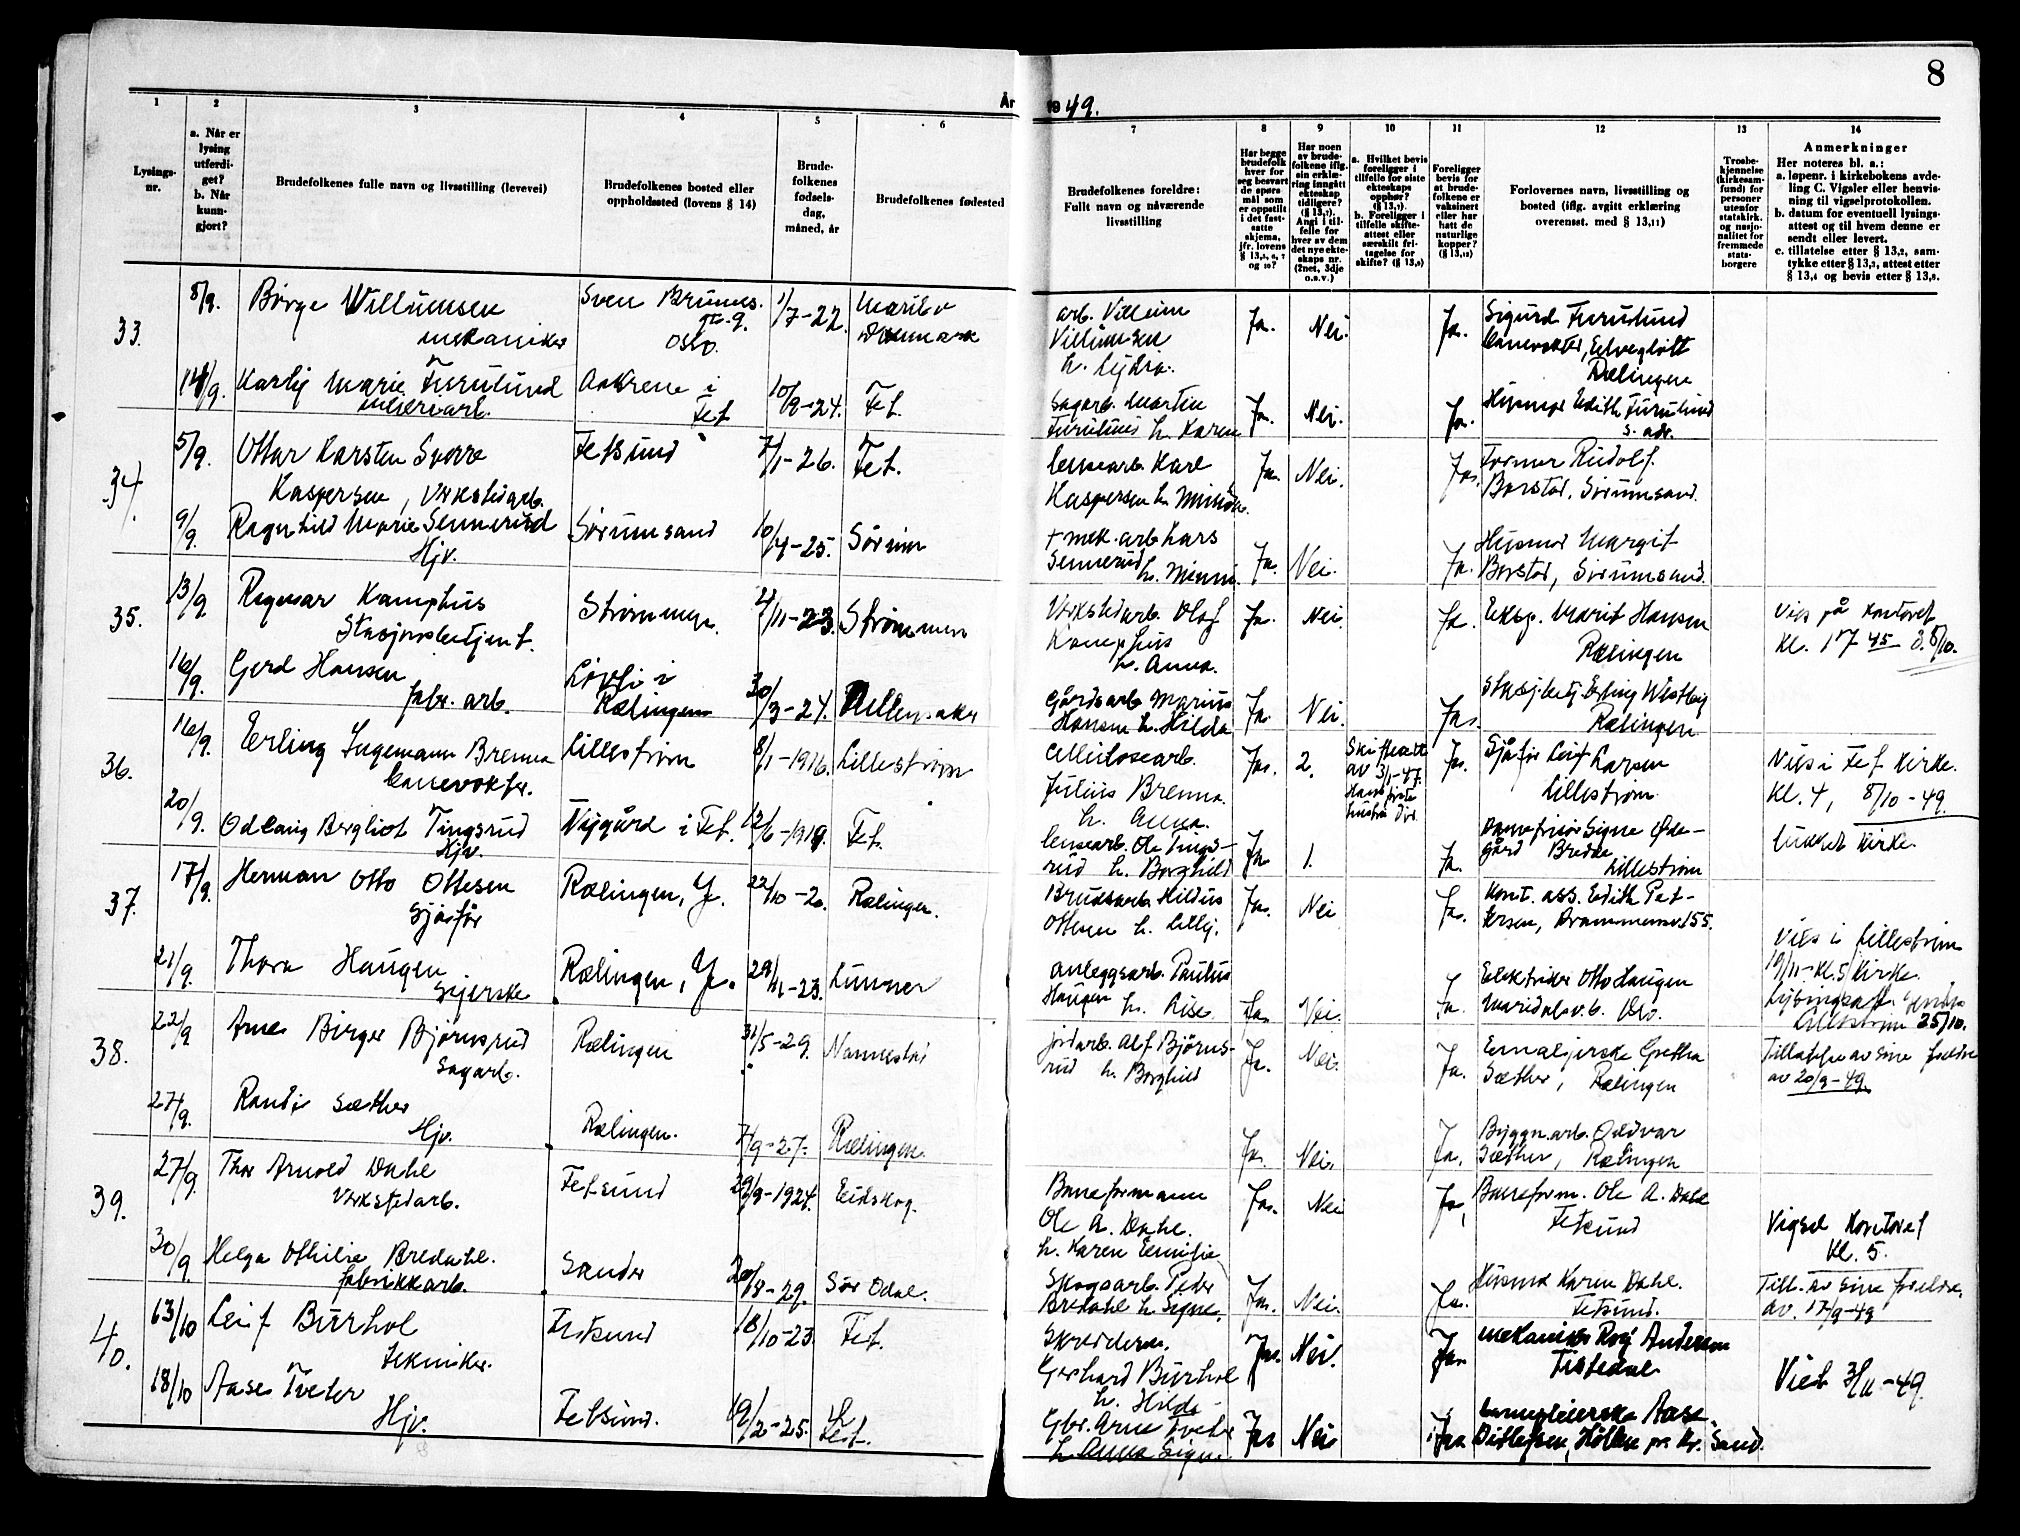 8
År 1949.
1
2
3
4
5
6
7
8
9
10
11
12
13
14
Lysings-
nr.
a. Når er
lysing
utferdi-
get?
b. Når
kunn-
gjort?
Brudefolkenes fulle navn og livsstilling (levevei)
Brudefolkenes bosted eller
oppholdssted (lovens § 14)
Brude-
folkenes
fødsels-
dag,
måned, år
Brudefolkenes fødested
Brudefolkenes foreldre:
Fullt navn og nåværende
livsstilling
Har begge
brudefolk
hver for
seg besvart
de spørs-
mål som
er oppstilt
i det fast-
satte
skjema,
jfr. lovens
og 10?
Har noen
av brude-
folkene iflg.
sin erklæ-
ring inngått
ekteskap
tidligere?
Angi i til-
felle for
hver av dem
det nye ekte-
skaps nr.
(2net, 3dje
o.s.v.)
a. Hvilket bevis
foreligger i
tilfelle for siste
ekteskaps
opphør?
b. Foreligger i
tilfelle skifte-
attest eller
særskilt fri-
tagelse for
Foreligger
bevis for
at brude-
folkene er
vaksinert
eller har
hatt de
naturlige
kopper?
Forlovernes navn, livsstilling og
bosted (iflg. avgitt erklæring
overenst. med § 13,11)
Trosbe-
kjennelse
(kirkesam-
fund) for
personer
utenfor
statskirk.
og nasjo-
nalitet for
fremmede
stats-
borgere
Anmerkninger
Her noteres bl. a.:
a. løpenr. i kirkebokens avde-
ling C. Vigsler eller henvis-
ning til vigselprotokollen.
b. datum for eventuell lysings-
attest og til hvem denne er
sendt eller levert.
c. tillatelse etter § 13,2, sam-
tykke etter § 13,3, attest etter
§ 13,4 og bevis etter § 13,8.
33.
8/9. Børge Willumsen
mekaniker
Oslo.
1/7-22.
Maribo
Danmark
arb. Villum
Villumsen
h. Lydia.
Ja. Nei. Ja.
Sigurd Furulund
Rælingen
14/9. Karly Marie Furulund
meieriarb.
i
Fet
10/9-24. Fet.
Sagarb. Martin
Furulund h. Karen
Ja. Nei. Ja.
Husmor Edith Furulund
s. adr.
34.
5/9. Ottar Karsten Sverre
Kaspersen, Verkstedarb.
Fetsund
7/1-26. Fet.
lensearb. Karl
Kaspersen h. Minda.
Ja. Nei. Ja.
Former Rudolf
Borstad, Sørumsand.
9/9. Ragnhild Marie Sennerud
Hjv.
Sørumsand
10/4-25. Sørum
+ mek. arb. Lars
Sennerud h. Minni.
Ja. Nei. Ja.
Husmor Margit
Borstad, Sørumsand.
35.
13/9 Ragnar Kamphus
Stasjonsbetjent.
Strømmen.
4/11-23. Strømmen
Verkstedarb. Olaf
Kamphus
h. Anna.
Ja. Nei. Ja.
Eksp. Marit Hansen
Rælingen
Vies på kontoret
Kl. 17 45 8/10.
16/9. Gerd Hansen
fabr. arb.
Løvli i
Rælingen
30/3-24. Ullensaker
Gårdsarb. Marius
Hansen h. Hilda
Ja. Nei. Ja.
Stasj.betj. Erling Westby
Rælingen
36.
16/9. Erling Ingemann Brenna
Banevokter.
Lillestrøm
8/1-1916. Lillestrøm
Cellulosearb.
Julius Brenna.
h. Anna.
Ja. 2.
av 3/1-47.
Ja.
Sjåfør Leif Larsen
Lillestrøm
Vies i Fet Kirke.
Kl. 4, 8/10-49.
20/9. Odlaug Bergliot Tingsrud
Hjv.
Nygård i Fet.
12/6-1919. Fet.
lensearb. Ole Tings-
rud h. Borghild
Ja. 1. Ja.
Lillestrøm
lukket kirke.
37.
17/9. Herman Otto Ottesen
Sjåfør
Rælingen, Y.
22/10-20. Rælingen.
Bruksarb. Hildus
Ottesen h. Lilly.
Ja. Nei Ja.
Kont. ass. Edith Pet-
tersen, Drammensv. 155.
21/9. Thora Haugen
Syerske
Rælingen, Y.
29/11-23. Lunner
anleggsarb. Paulus
Haugen h. Lise.
Ja. Nei. Ja.
Elektriker Otto Haugen
Maridalsv. 6. Oslo.
Vies i Lillestrøm
Kl. 5 Kirke.
Lillestrøm 25/10.
38.
22/9 Arne Birger Bjørnsrud
Sagarb.
Rælingen
31/5-29. Nannestad
jordarb. Alf Bjørns-
rud h. Borghild
Ja. Nei. Ja.
Grethe
Sæther, Rælingen
Tillatelse av sine foreldre
av 20/9-49.
27/9. Randi Sæther
Hjv.
Rælingen.
7/9-27. Rælingen.
Ja. Nei. Ja.
Byggn.arb. Oddvar
Sæther, Rælingen
39.
27/9. Thor Arnold Dahl
Verkstedarb.
Fetsund
29/9-1924. Eidskog.
Baneformann
Ole A. Dahl.
h. Karen Emilie
Ja. Nei Ja,
Baneform. Ole A. Dahl
Fetsund
Vigsel Kontoret
Kl. 5.
30/9. Helga Othilie Bredahl.
fabrikkarb.
Sander
20/8-29. Sør Odal.
Skogsarb. Peder
Bredahl h. Signe.
Ja. Nei. Ja.
Husmor Karen Dahl.
Fetsund.
Till. av sine foreldre
av. 17/9-49
40.
13/10 Leif Burhol
tekniker.
Fetsund
18/10-23 Fet.
Skredderm.
Gerhard Burhol
h. Hilda
Ja. Nei. Ja.
mekaniker Roy Andersen
Tistedal
Viet 3/11-49.
18/10 Aase Tveter
Hjv.
Fetsund.
19/2-25. Fet.
Gbr. Arne Tveter
h. Anna Signe.
Ja Nei Ja.
Aase
Ditlefsen, Hølen pr. Kr. Sand.